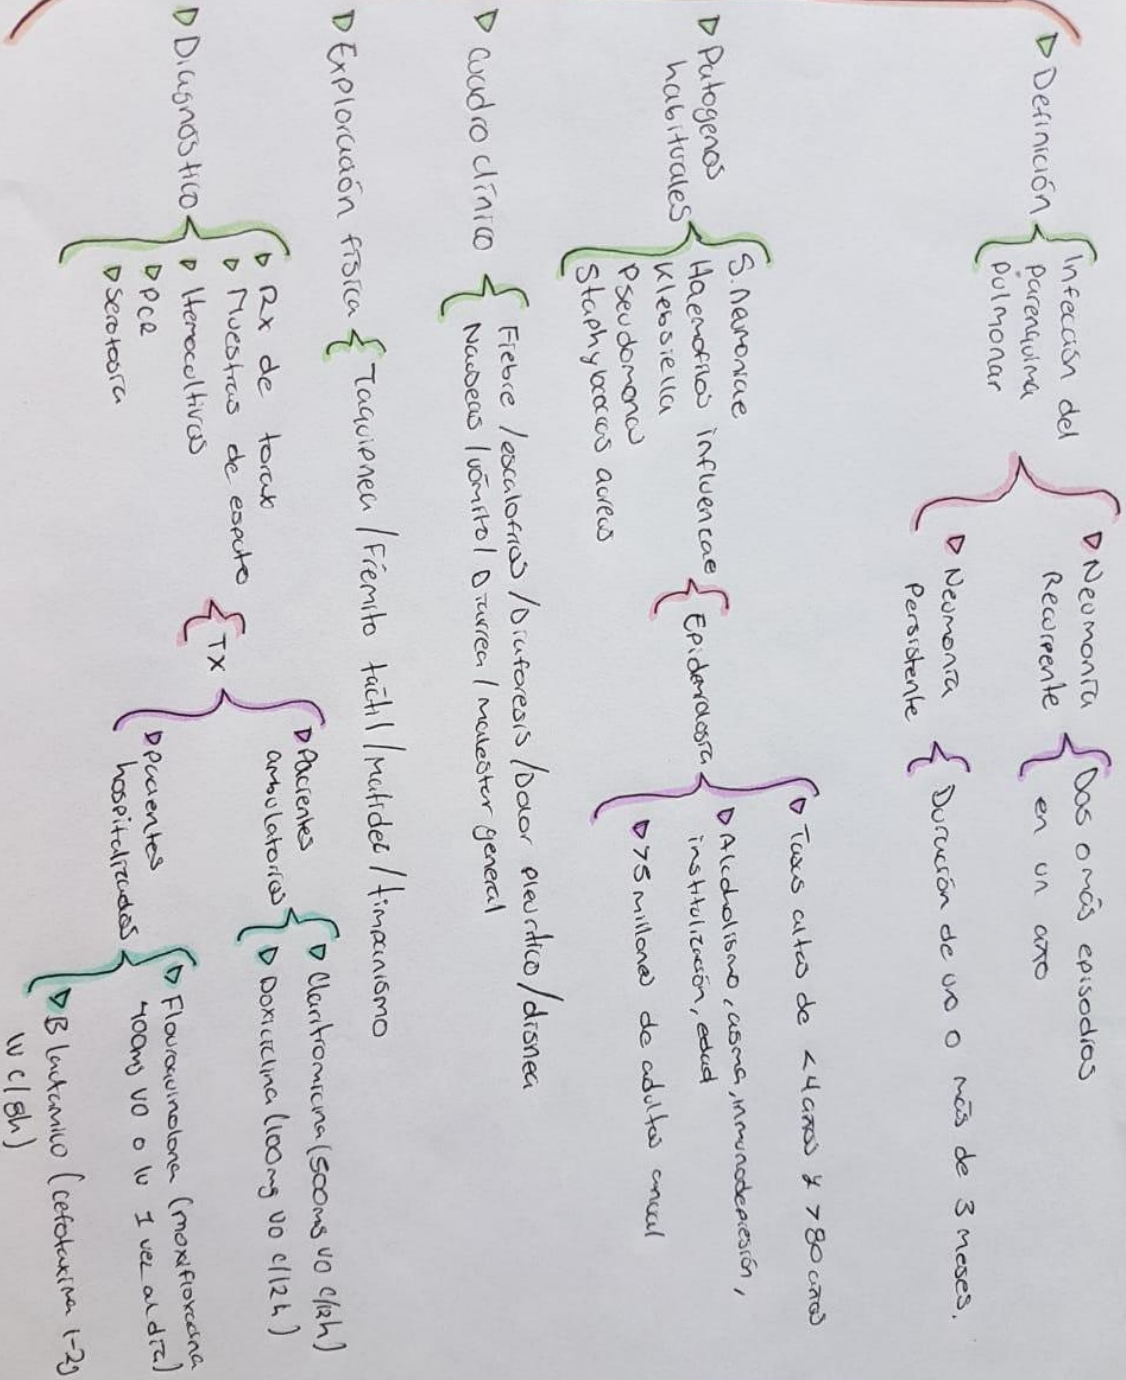 ▷ Definición
Infección del
parenquima
pulmonar
▷ Neumonía
Recurrente
Dos o más episodios
en un año
▷ Neumonía
Persistente
Duración de uno o más de 3 meses.
▷ Patogenos
habituales
S. neumoniae
Haemofilos influencae
Klebsiella
Pseudomonas
Staphylococcus aureus
Epidemiología
▷ Tasas altas de <4 años y >80 años
▷ Alcoholismo, asma, inmunodepresión,
institulización, edad
▷ >5 millones de adultos anual
▷ Cuadro clínico
Fiebre / escalofrios / Diaforesis / Dolor pleurítico / disnea
Nauseas / vómito / Diarrea / malestar general
▷ Exploración física
Taquipnea / Frémito táctil / matidez / timpanismo
▷ Diagnóstico
▷ Rx de torax
▷ Muestras de esputo
▷ Hemocultivos
▷ PCR
▷ Serología
Tx
▷ Pacientes
ambulatorios
▷ Claritromicina (500mg VO c/12h)
▷ Doxiciclina (100mg VO c/12h)
▷ Pacientes
hospitalizados
▷ Flouroquinolona (moxifloxacina
400mg VO o IV 1 vez al día)
▷ B lactamico (cefotaxima 1-2g
IV c/8h)